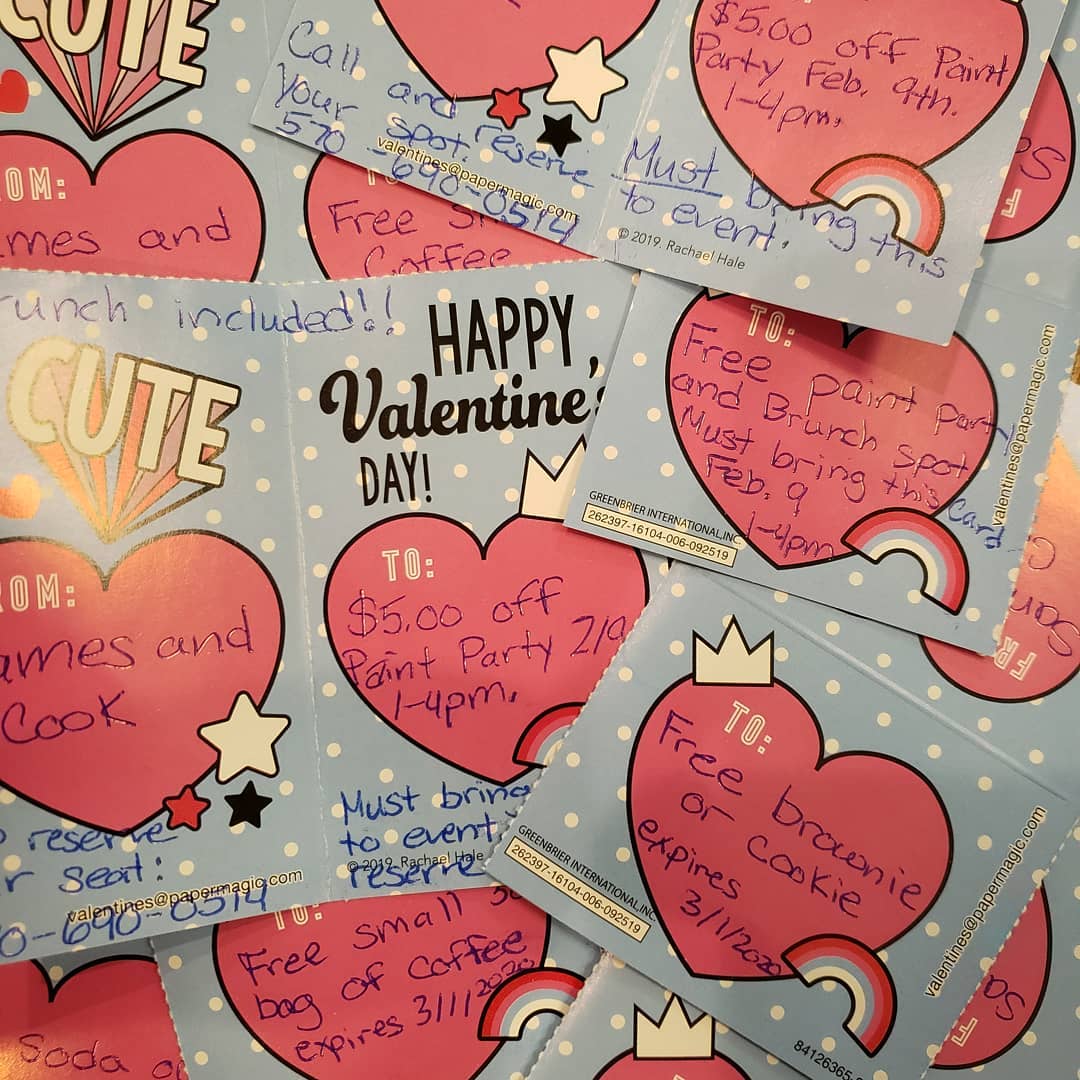 CUTE
Call and reserve
Your spot.
570-690-0514
valentines@papermagic.com
$5.00 off Paint
Party Feb. 9th.
1-4pm.
Must bring this
to event.
© 2019. Rachael Hale
and
Free
Coffee
included!!
CUTE
and
Cook
reserve
seat:
690-0514
valentines@papermagic.com
HAPPY
Valentine's
DAY!
TO:
$5.00 off
Paint Party 2/9
1-4pm.
Must bring
to event
© 2019. Rachael Hale
reserve
TO:
Free paint party
and Brunch spot
Must bring this card
Feb. 9
1-4pm
valentines@papermagic.com
GREENBRIER INTERNATIONAL, INC
262397-16104-006-092519
TO:
Free brownie
or cookie
expires
3/1/2020
valentines@papermagic.com
GREENBRIER INTERNATIONAL, INC
262397-16104-006-092519
84126365
TO:
Free small
bag of coffee
expires 3/1/2020
Soda